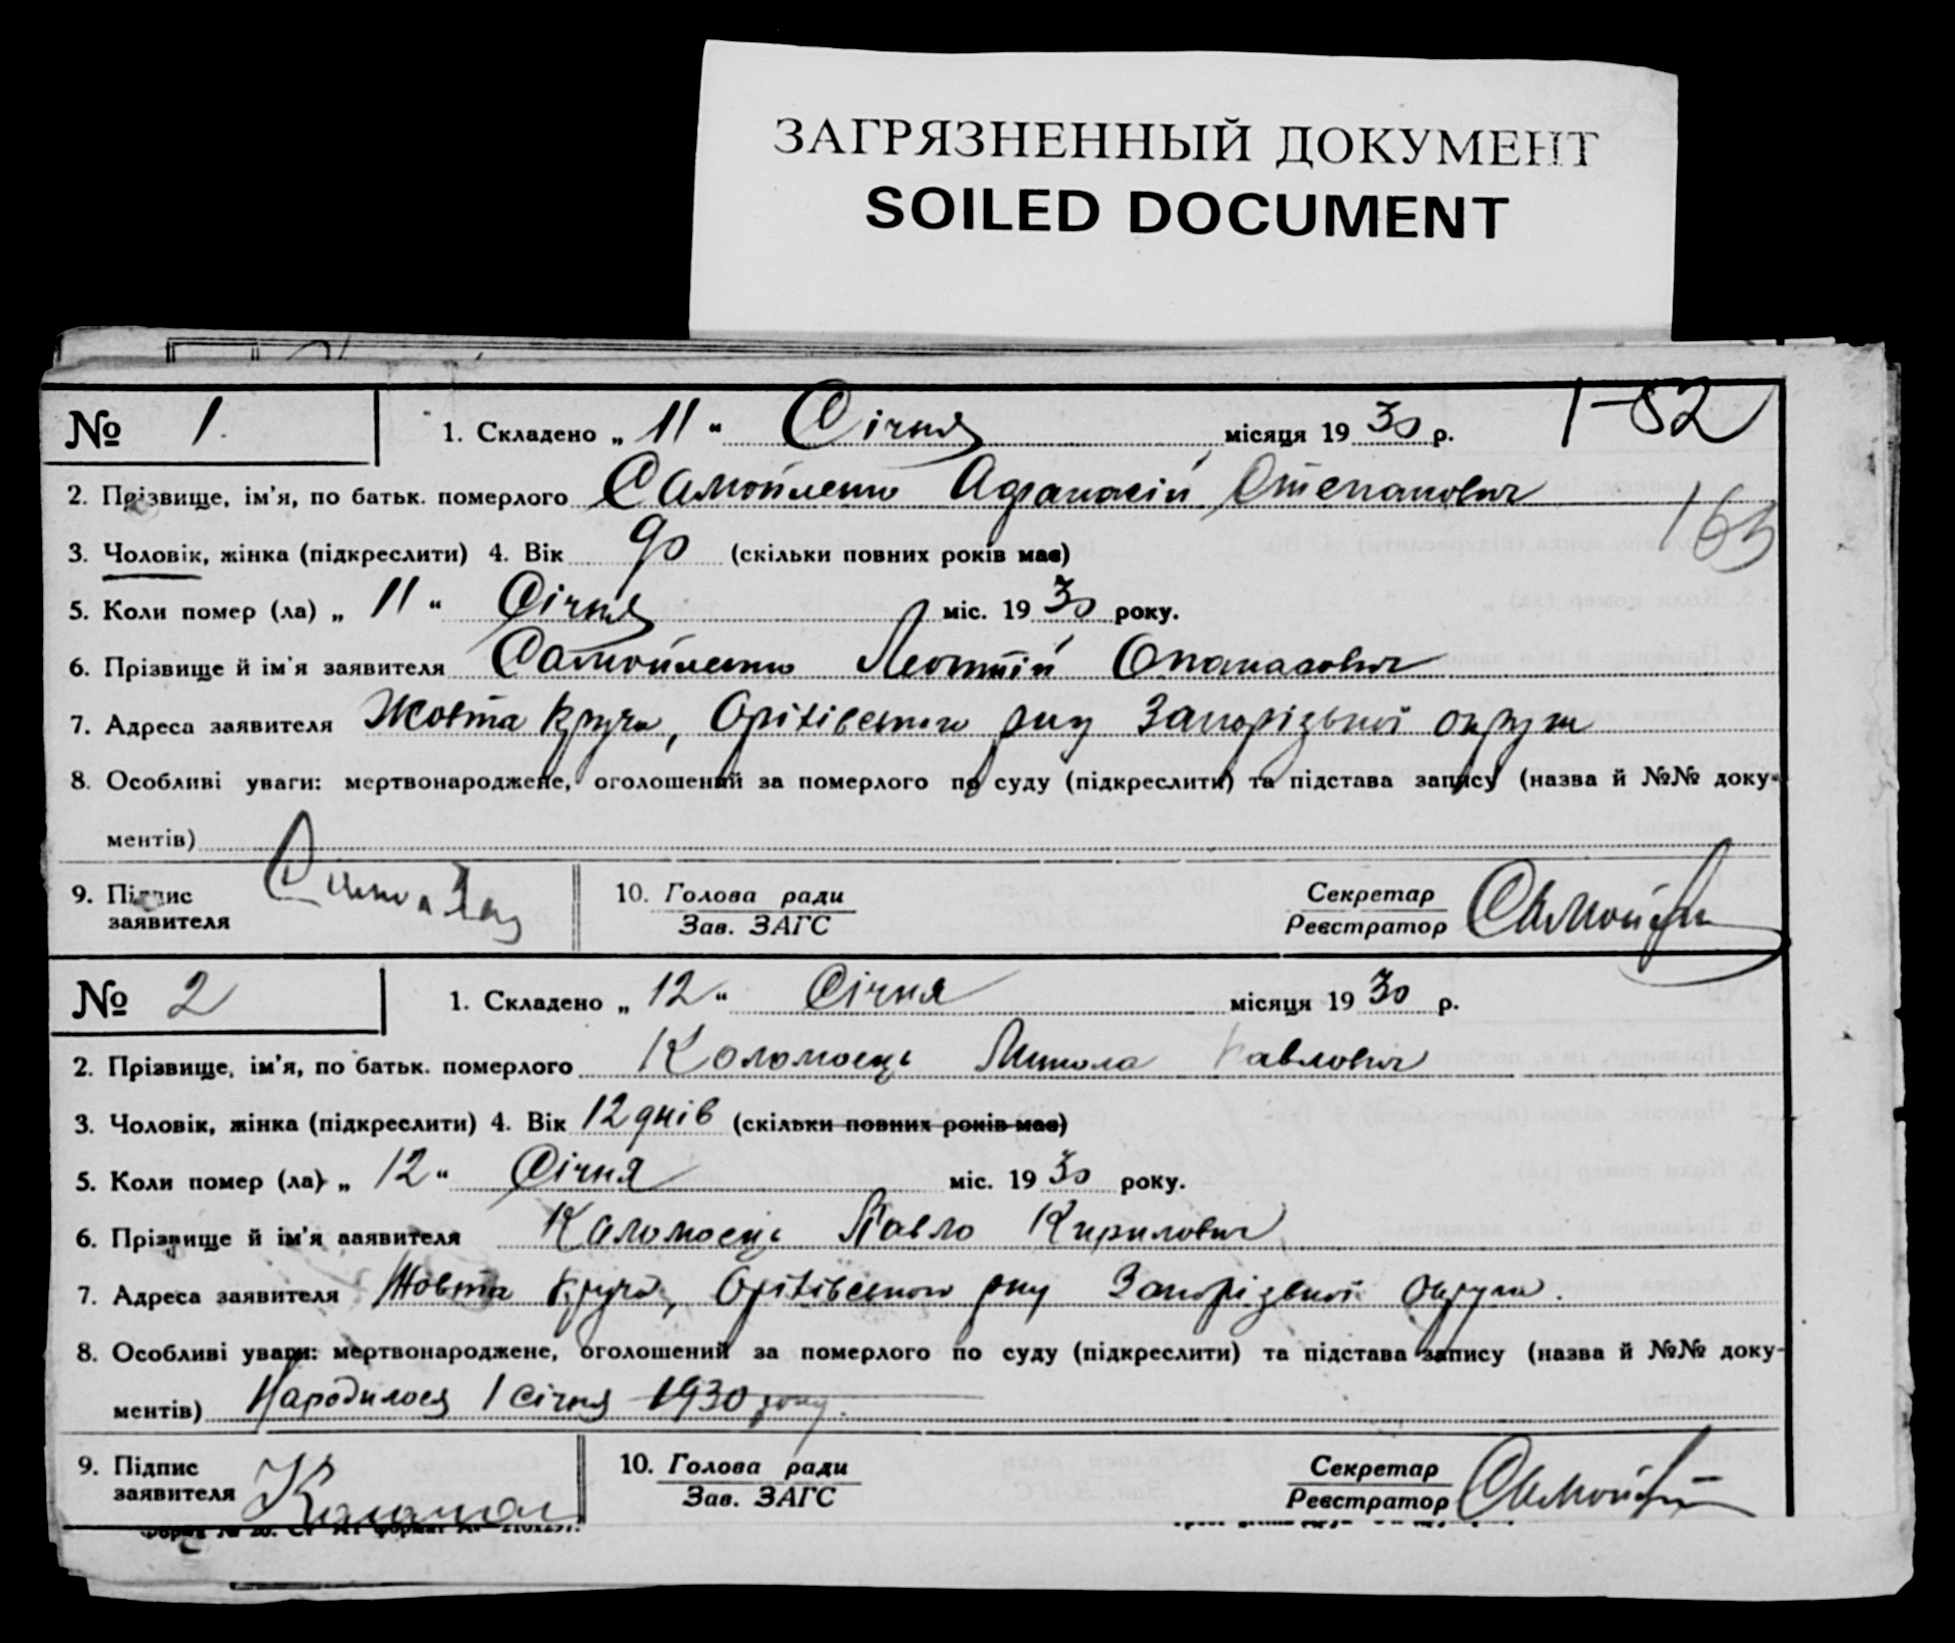 ЗАГРЯЗНЕННЫЙ ДОКУМЕНТ
SOILED DOCUMENT
№ 1. 1. Складено „ 11 “ Січня місяця 19 30 р. 1-82
2. Прізвище, ім'я, по батьк. померлого Самойленко Афанасій Степанович
163
3. Чоловік, жінка (підкреслити) 4. Вік 90 (скільки повних років має)
5. Коли помер (ла) „ 11 “ Січня міс. 19 30 року.
6. Прізвище й ім'я заявителя Самойленко Леонтій Опанасович
7. Адреса заявителя Жовта Круча, Оріхівського р-ну Запорізької округи
8. Особливі уваги: мертвонароджене, оголошений за померлого по суду (підкреслити) та підстава запису (назва й №№ доку-
ментів)
9. Підпис заявителя 10. Голова ради Секретар
Зав. ЗАГС Реєстратор
№ 2 1. Складено „ 12 “ Січня місяця 19 30 р.
2. Прізвище, ім'я, по батьк. померлого Коломоєць Микола Павлович
3. Чоловік, жінка (підкреслити) 4. Вік 12 днів (скільки повних років має)
5. Коли помер (ла) „ 12 “ Січня міс. 19 30 року.
6. Прізвище й ім'я заявителя Коломоєць Павло Кирилович
7. Адреса заявителя Жовта Круча, Оріхівського р-ну Запорізької округи.
8. Особливі уваги: мертвонароджене, оголошений за померлого по суду (підкреслити) та підстава запису (назва й №№ доку-
ментів) Народилося 1 січня 1930 року.
9. Підпис заявителя 10. Голова ради Секретар
Зав. ЗАГС Реєстратор